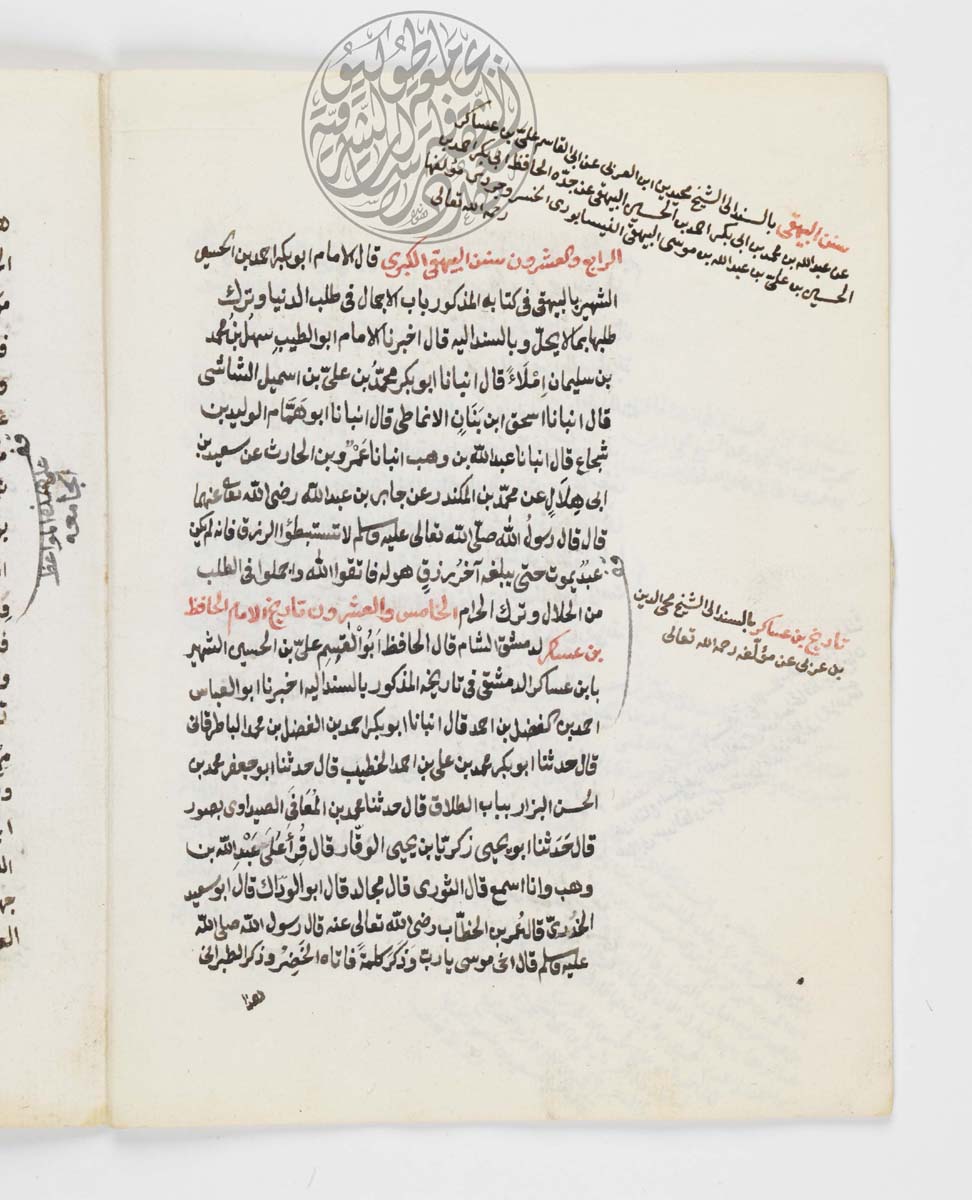 سنن البيهقى بالسند الى الشيخ محمد بن ابن العربى عن ابى القاسم على بن عساكر
عن عبد الله بن محمد بن ابى بكر احمد بن الحسين البيهقى عن جده الحافظ ابى بكر احمد بن
الحسين بن على بن عبد الله بن موسى البيهقى النيسابورى الخسروجردى مؤلفها
رحمه الله تعالى
الرابع والعشرون سنن البيهقى الكبرى قال الامام ابو بكر احمد بن الحسين
الشهير بالبيهقى فى كتابه المذكور باب الاجمال فى طلب الدنيا وترك
طلبها بما لا يحلّ وبالسند اليه قال اخبرنا الامام ابو الطيب سهل بن محمد
بن سليمان إملاءً قال انبانا ابو بكر محمّد بن علىّ بن اسمعيل الشاشى
قال انبانا اسحق ابن بَنَانِ الانماطى قال انبانا ابو همّام الوليد بن
شجاع قال انبانا عبد الله بن وهب انبانا عَمْرو بن الحارث عن سعيد بن
ابى هِلَالٍ عن محمّد بن المنكدر عن جابر بن عبد الله رضى الله تعالى عنهما
قال قال رسولُ الله صلّى الله تعالى عليه وسلم لا تستبطؤا الرزق فانه لم يكن
عبدٌ يموت حتى يبلغه آخرُ رزقٍ هو له فاتقوا الله واجملوا فى الطلب
من الحلال وترك الحرام الخامس والعشرون تاريخ الامام الحافظ
بن عساكر لدمشق الشام قال الحافظ ابُو القٰسِم علىّ بن الحسين الشهير
بابن عساكر الدمشقى فى تاريخه المذكور بالسند اليه اخبرنا ابو العباس
احمد بن الفضل بن احمد قال انبانا ابو بكر احمد بن الفضل بن محمد الباطرقانى
قال حدثنا ابو بكر محمد بن على بن احمد الخطيب قال حدثنا ابو جعفر محمد بن
الحسن البزار بباب الطلاق قال حدثنا محمد بن المُعَافَى الصيداوى بصور
قال حَدثنا ابو يحيى زكريّا بن يحيى الوقّار قال قُرأ عَلَى عَبْدِ الله بن
وهب وانا اسمع قال الثورى قال مجالد قال ابو الودّاك قال ابو سعيد
الخدرىّ قال عُمر بن الخطّاب رضى الله تعالى عنه قال رسول الله صلى الله
عليه وسلم قال اخى موسى يا ربّ وَذَكَرَ كلمةً فاتاه الخَضِرُ وذكر الطبرانى
تاريخ بن عساكر بالسند الى الشيخ محى الدين
بن عربى عن مؤلفه رحمه الله تعالى
قف
على هذه المواعظ
الجامعه